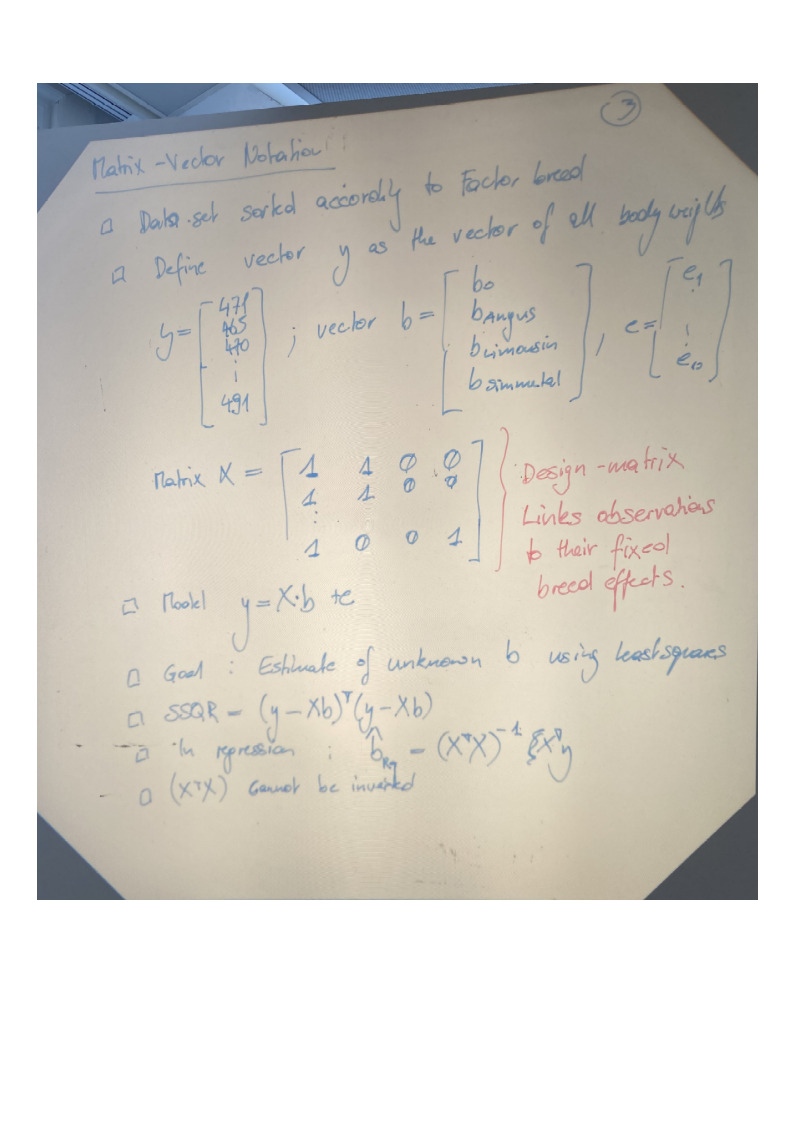 3
Matrix-Vector Notation:
□ Data-set sorted accordly to Factor breed
□ Define vector y as the vector of all body weights
y = [471 465 470 ⋮ 491] ; vector b = [b0 bAngus bLimousin bSimmetal] , e = [e1 ⋮ e10]
Matrix X = [1 1 0 0
1 1 0 0
⋮
1 0 0 1]
Design-matrix
Links observations
to their fixed
breed effects.
□ Model y = X·b + e
□ Goal : Estimate of unknown b using least squares
□ SSQR = (y - Xb)ᵀ(y - Xb)
□ In regression : b̂Rg = (XᵀX)⁻¹ Xᵀy
□ (XᵀX) cannot be inverted